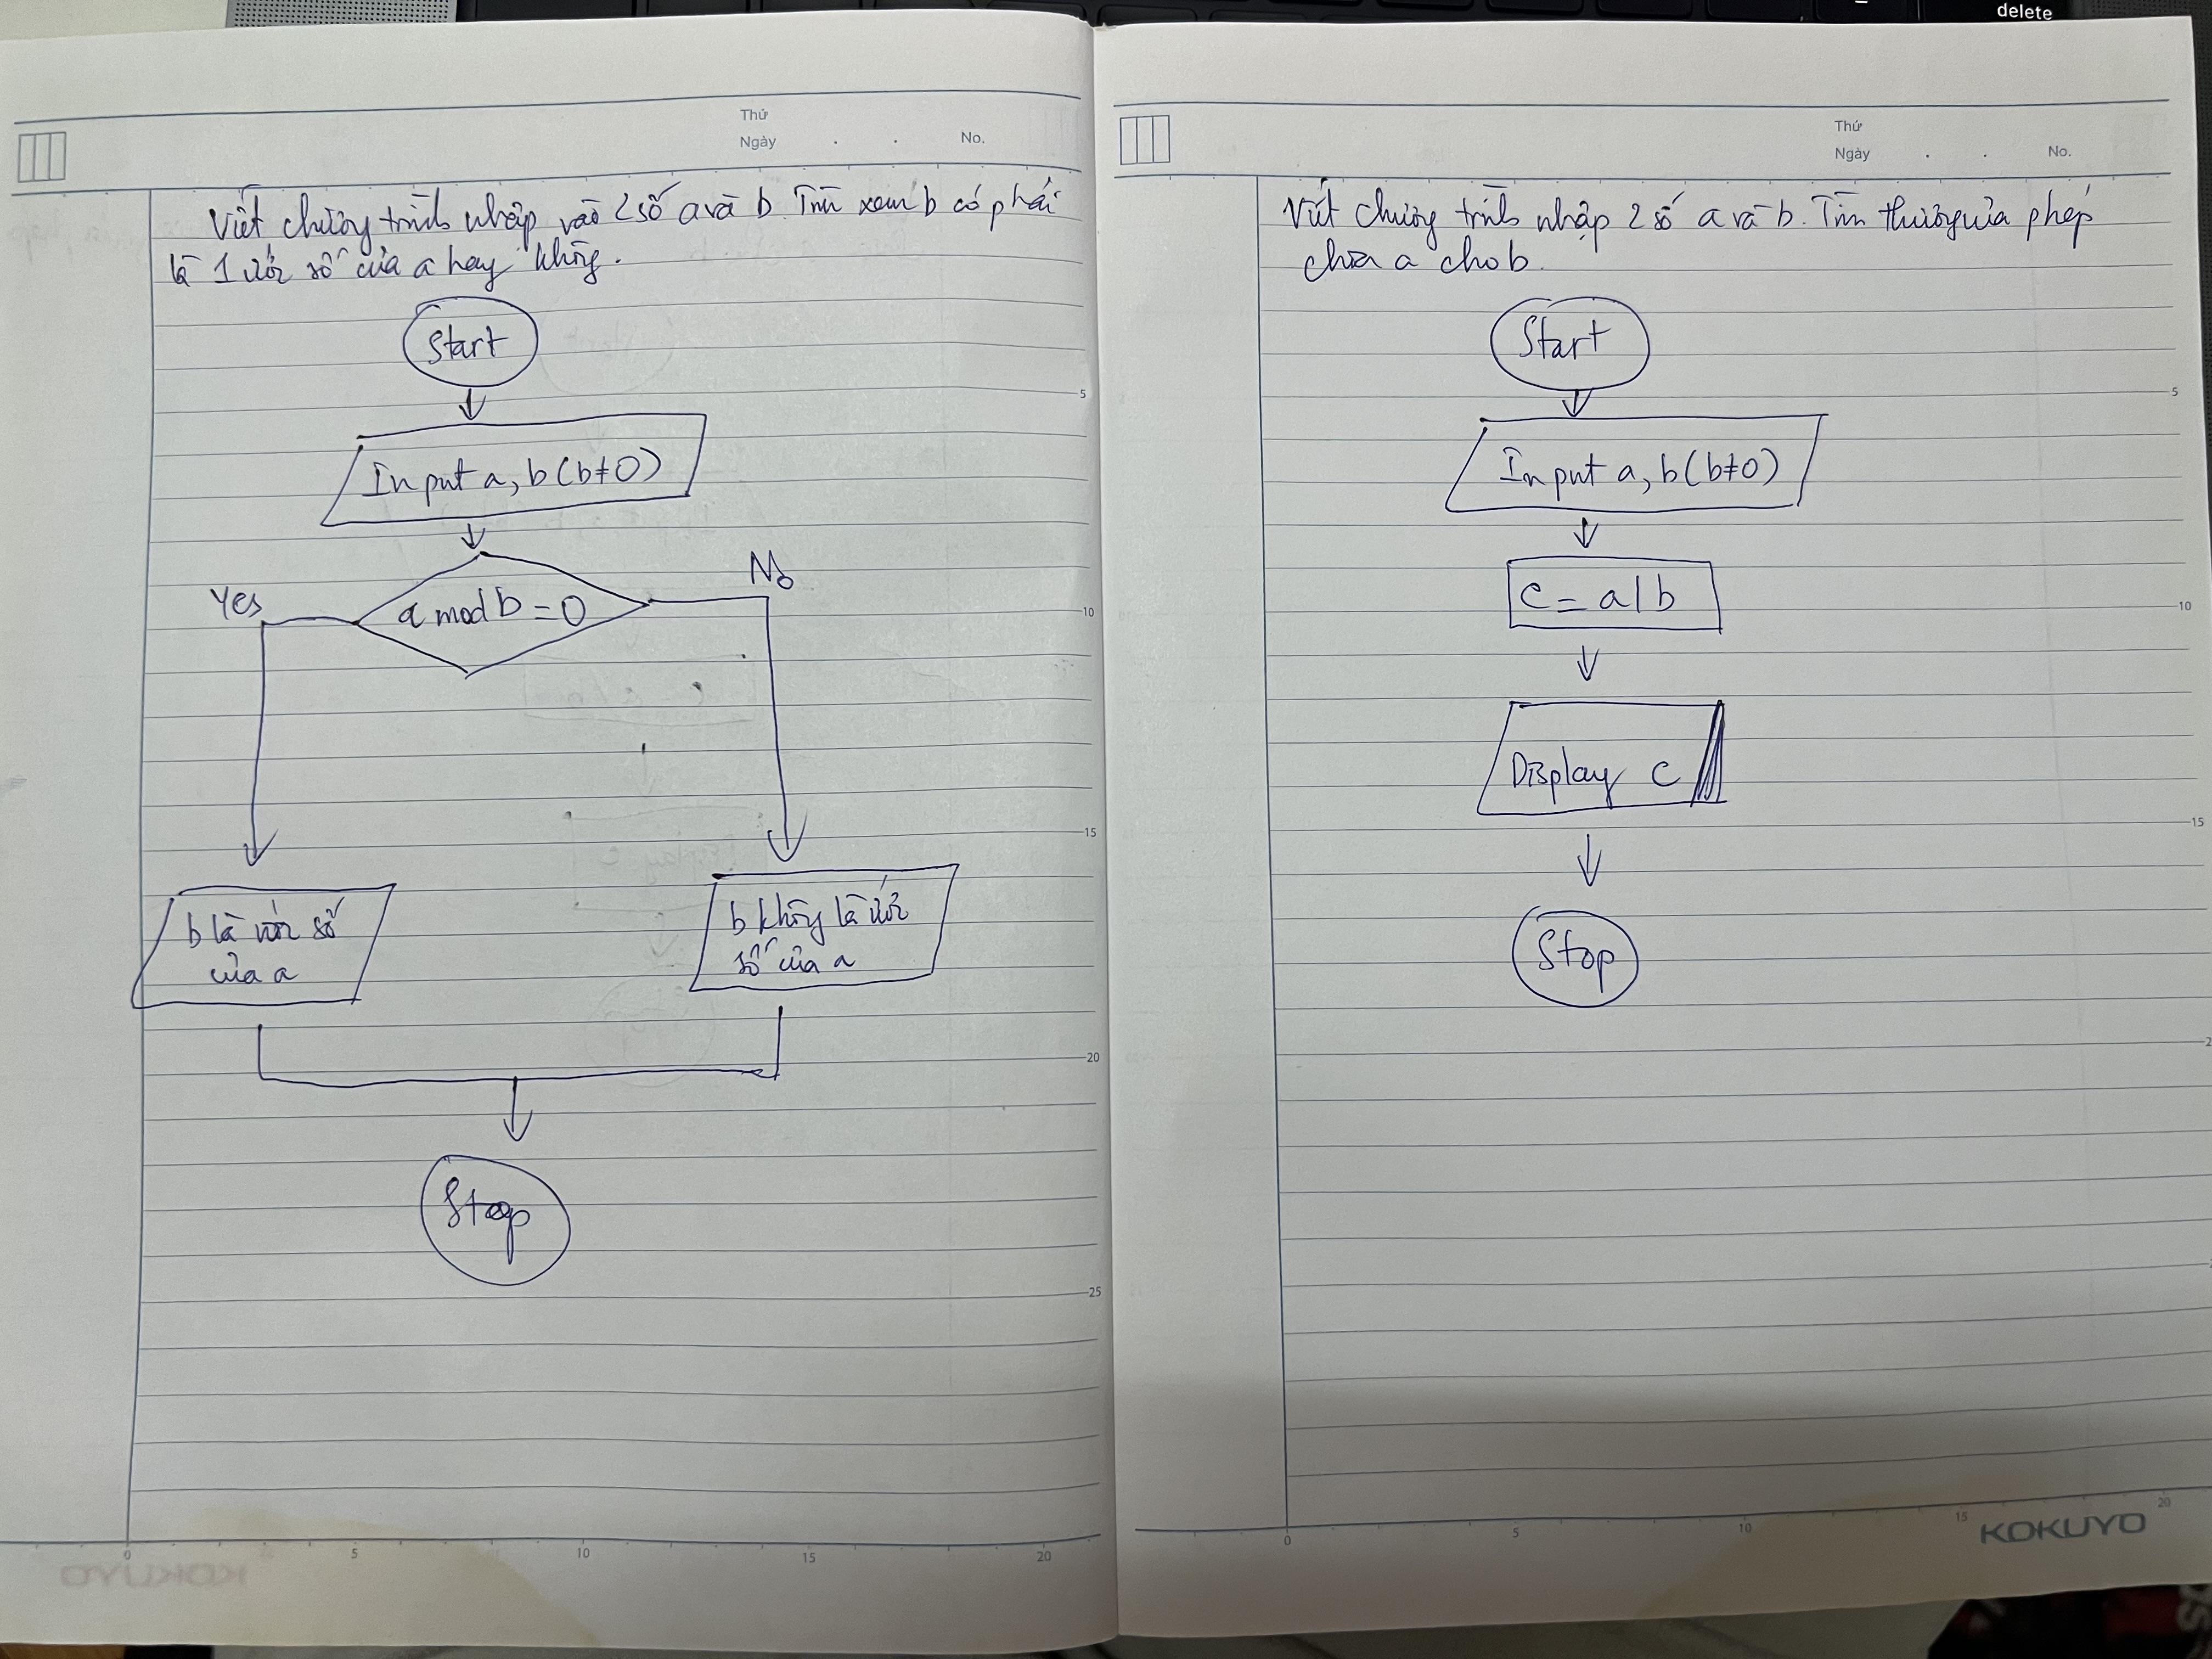 delete
Thứ
Ngày . . No.
Viết chương trình nhập vào 2 số a và b. Tìm xem b có phải
là 1 ước số của a hay không.
Start
5
Input a, b (b≠0)
Yes
No
a mod b = 0
10
15
b là ước số
của a
b không là ước
số của a
20
Stop
25
0 5 10 15 20
KOKUYO
Thứ
Ngày . . No.
Viết chương trình nhập 2 số a và b. Tìm thương của phép
chia a cho b.
Start
5
Input a, b (b≠0)
c = a/b
10
Display c
15
Stop
0 5 10 15 20
KOKUYO